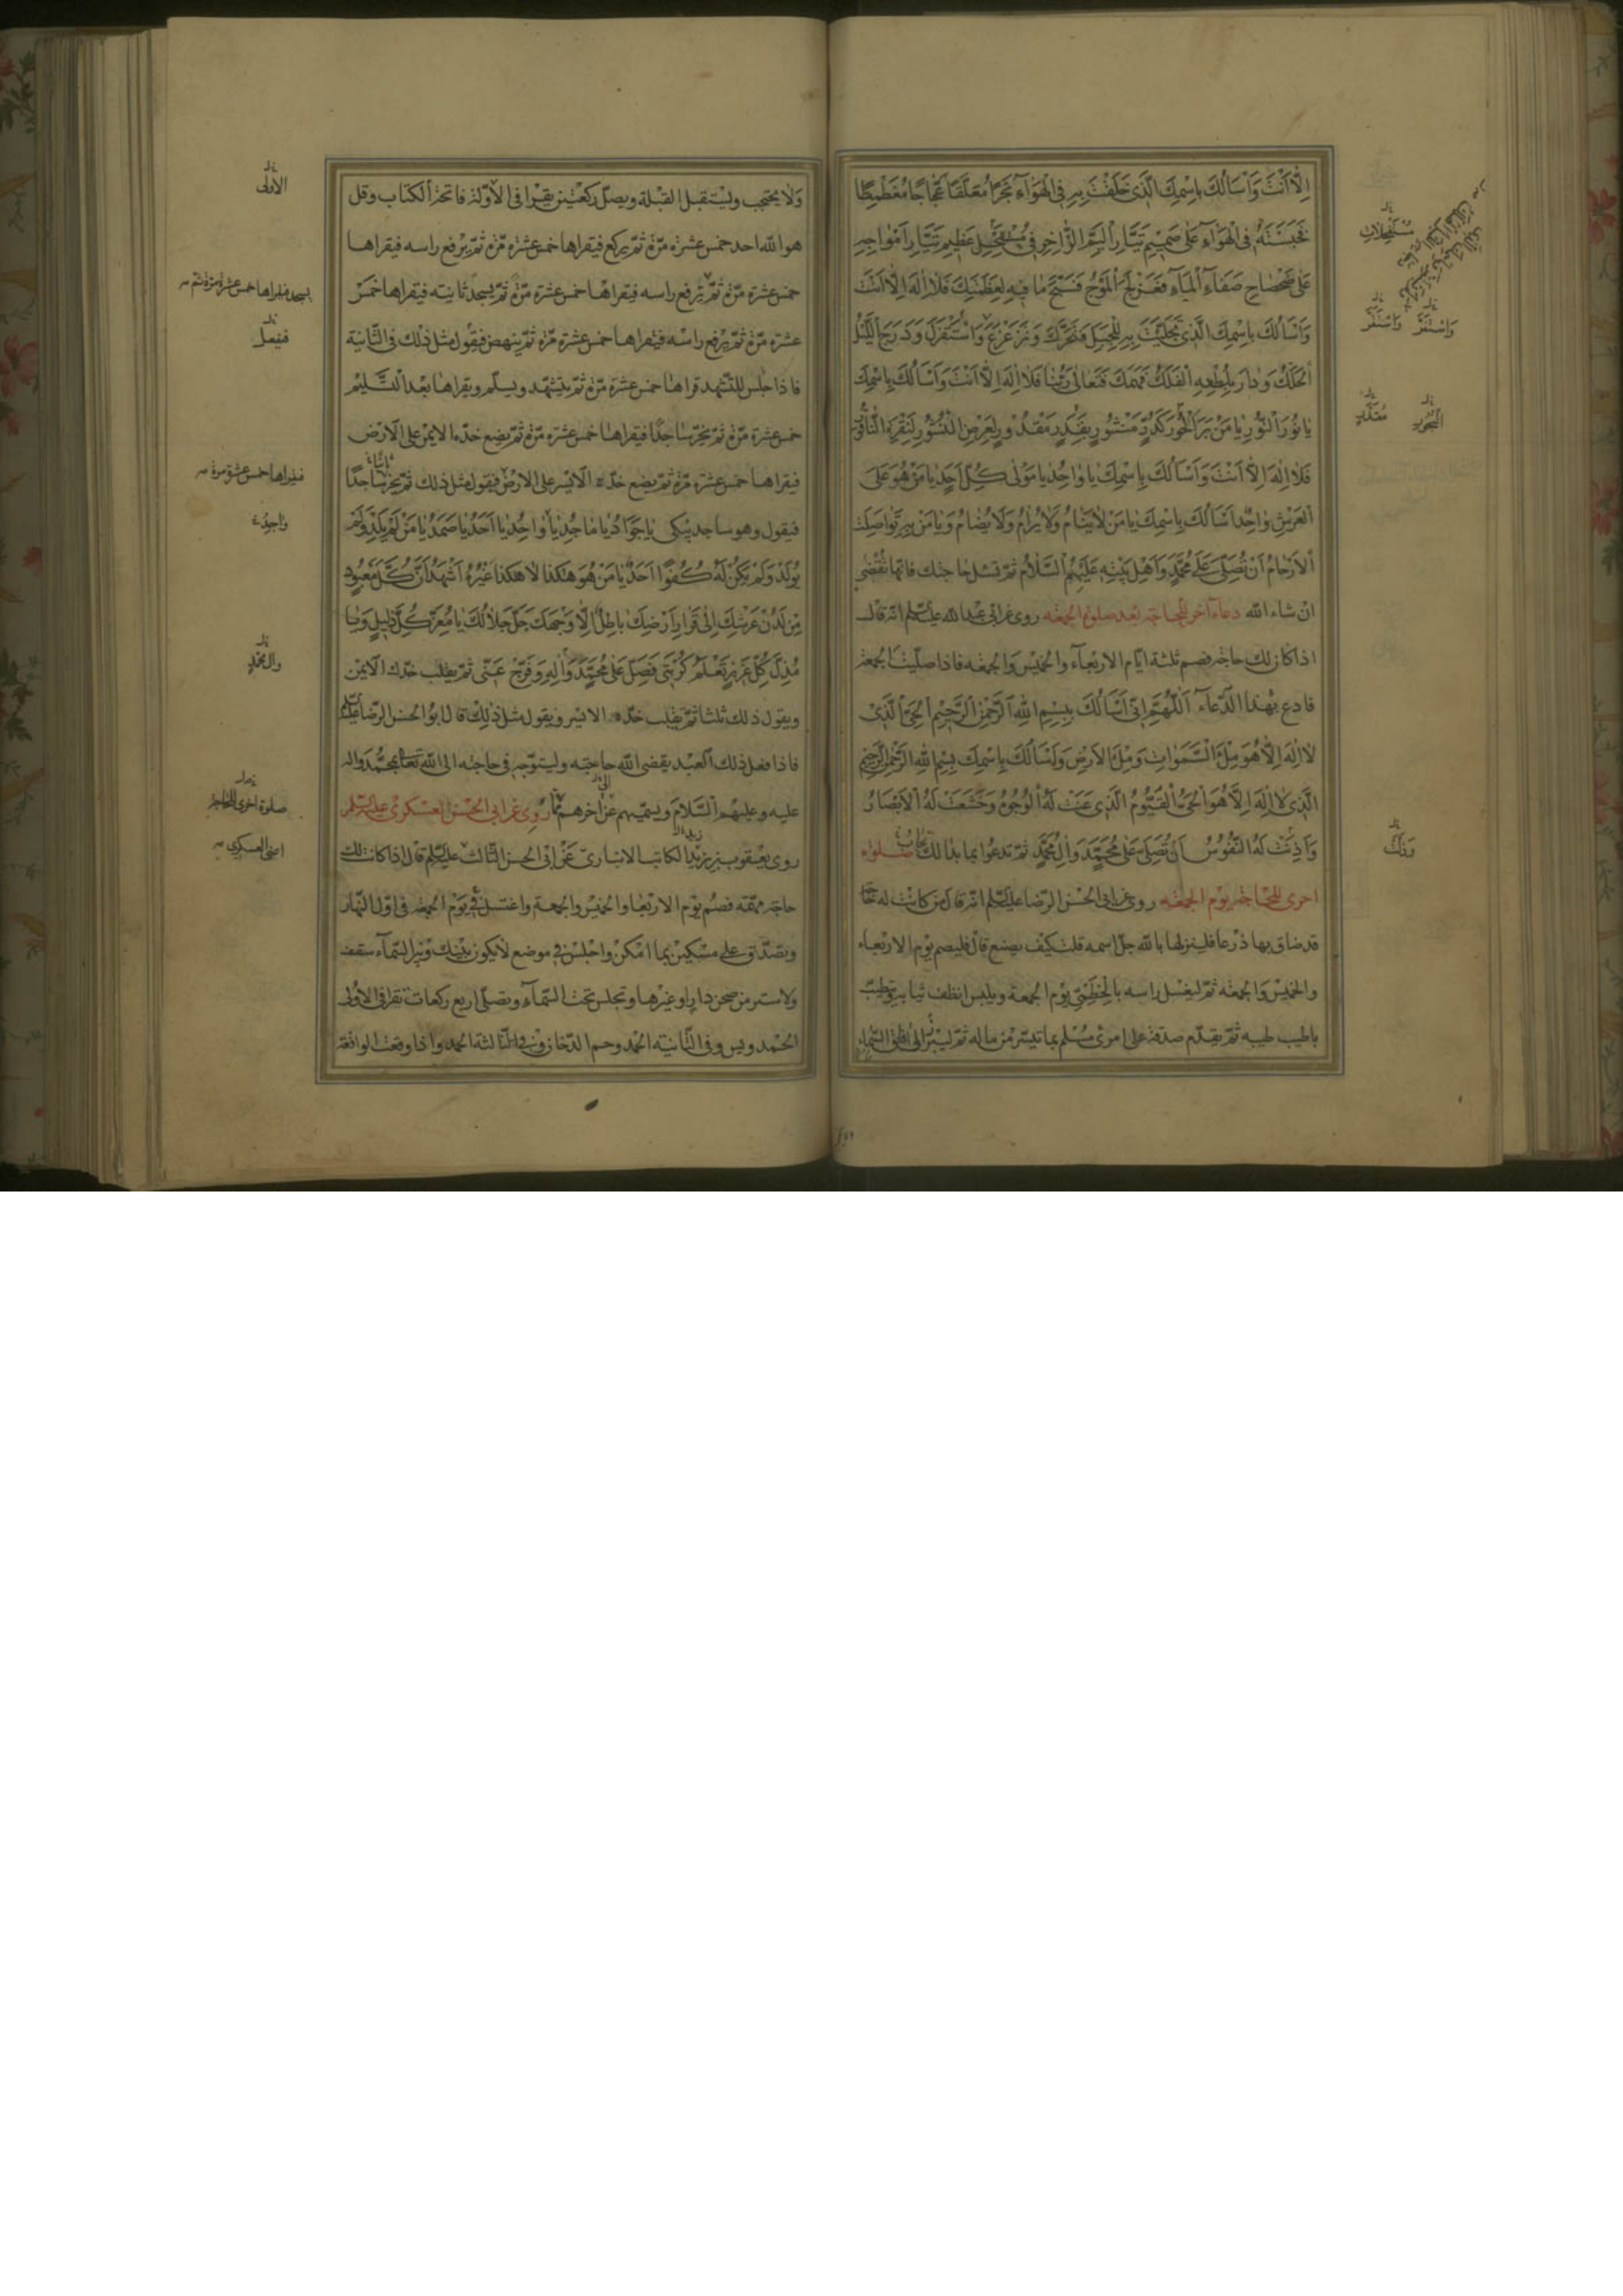 اِلّٰا اَنْتَ وَاَسْاَلُكَ بِاسْمِكَ الَّذِى خَلَقْتَ بِهِ فِى الْهَوَآءِ بَحْرًا مُعَلَّقًا عَجَّاجًا مُغَطْمِطًا
فَحَبَسْتَهُ فِى الْهَوَآءِ عَلىٰ صَمِيمِ تَيَّارِ الْيَمِّ الزّٰاخِرِ فِى عَظِيمِ تَيَّارِ اَمْوٰاجِهِ
عَلىٰ ضَحْضٰاحِ صَفَآءِ الْمَآءِ الْمَوْجُ فَسَبَّحَ مٰا فِيهِ لِعَظَمَتِكَ فَلٰا اِلٰهَ اِلّٰا اَنْتَ
وَاَسْاَلُكَ بِاسْمِكَ الَّذِى تَجَلَّيْتَ بِهِ لِلْجَبَلِ فَتَحَرَّكَ وَتَزَعْزَعَ وَاسْتَقْزَلَ وَدَرَجَ اللَّيْلُ
الْحَلَكُ وَدٰارَ بِلُطْفِهِ الْفَلَكُ فَهَمَكَ فَتَعٰالىٰ رَبُّنٰا فَلٰا اِلٰهَ اِلّٰا اَنْتَ وَاَسْاَلُكَ بِاسْمِكَ
يٰا نُورَ النُّورِ يٰا مَنْ بَرَاَ الْحُورَ كَدُرٍّ مَنْثُورٍ بِقَدَرٍ مَقْدُورٍ لِعَرْضِ النُّشُورِ لِنَقْرَةِ النّٰاقُورِ
فَلٰا اِلٰهَ اِلّٰا اَنْتَ وَاَسْاَلُكَ بِاسْمِكَ يٰا وٰاحِدُ يٰا مَوْلىٰ كُلِّ اَحَدٍ يٰا مَنْ هُوَ عَلَى
الْعَرْشِ وٰاحِدٌ اَسْاَلُكَ بِاسْمِكَ يٰا مَنْ لٰا يَنٰامُ وَلٰا يُرٰامُ وَلٰا يُضٰامُ وَيٰا مَنْ بِهِ تَوٰاصَلَتِ
الْاَرْحٰامُ اَنْ تُصَلِّىَ عَلىٰ مُحَمَّدٍ وَاَهْلِ بَيْتِهِ عَلَيْهِمُ السَّلٰامُ ثمّ تسئل حاجتك فانّها تُقْضىٰ
ان شاء الله دعاء آخر للحاجة بعد صلوة الجمعة روى عن ابى عبد الله عليه السّلم انّه قال
اذا كان لك حاجة فصم ثلثة ايّام الاربعآء والخميس والجمعة فاذا صلّيت الجمعة
فادع بهذا الدّعآء اَللّٰهُمَّ اِنِّى اَسْاَلُكَ بِبِسْمِ اللهِ الرَّحْمٰنِ الرَّحِيمِ الْحَىِّ الَّذِى
لٰا اِلٰهَ اِلّٰا هُوَ مِلْءَ السَّمٰوٰاتِ وَمِلْءَ الْاَرْضِ وَاَسْاَلُكَ بِاسْمِكَ بِسْمِ اللهِ الرَّحْمٰنِ الرَّحِيمِ
الَّذِى لٰا اِلٰهَ اِلّٰا هُوَ الْحَىُّ الْقَيُّومُ الَّذِى عَنَتْ لَهُ الْوُجُوهُ وَخَشَعَتْ لَهُ الْاَبْصٰارُ
وَاَذِنَتْ لَهُ النُّفُوسُ اَنْ تُصَلِّىَ عَلىٰ مُحَمَّدٍ وَاٰلِ مُحَمَّدٍ ثمّ تدعوا بما بدا لك صلوة
اخرى للحاجة يوم الجمعة روى عن ابى الحسن الرّضا عليه السّلم انّه قال من كانت له حاجة
قد ضاق بها ذرعا فلينزلها بالله جلّ اسمه قلت كيف يصنع قال فليصم يوم الاربعاء
والخميس والجمعة ثمّ ليغسل راسه بالخطمىّ يوم الجمعة ويلبس انظف ثيابه ويتطيّب
باطيب طيبه ثمّ يقدّم صدقة على امرئ مسلم بما تيسّر من ماله ثمّ ليبرز الى افاق السّماء
مُسْتَفْحِلَاتِ
وَاسْتَفَزَّ
وَاسْتَقَرَّ
الْبُحُورَ
وَذَلَّتْ
ولا يحتجب وليستقبل القبلة ويصلّ ركعتين يقرا فى الاولة فاتحة الكتاب وقل
هو الله احد خمس عشرة مرّة ثمّ يركع فيقراها خمس عشرة مرّة ثمّ يرفع راسه فيقراها
خمس عشرة مرّة ثمّ يرفع راسه فيقراها خمس عشرة مرّة ثمّ يسجد ثانية فيقراها خمس
عشرة مرّة ثمّ يرفع راسه فيقراها خمس عشرة مرّة ثمّ ينهض فيقول مثل ذلك فى الثّانية
فاذا جلس للتّشهد قراها خمس عشرة مرّة ثمّ يتشهّد ويسلّم ويقراها بعد التّسليم
خمس عشرة مرّة ثمّ يخرّ ساجدًا فيقراها خمس عشرة مرّة ثمّ يضع خدّه الايمن على الارض
فيقراها خمس عشرة مرّة ثمّ يضع خدّه الايسر على الارض فيقول مثل ذلك ثمّ يخرّ ساجدًا
فيقول وهو ساجد يبكى يٰا جَوٰادُ يٰا مٰاجِدُ يٰا وٰاحِدُ يٰا اَحَدُ يٰا صَمَدُ يٰا مَنْ لَمْ يَلِدْ وَلَمْ
يُولَدْ وَلَمْ يَكُنْ لَهُ كُفُوًا اَحَدٌ يٰا مَنْ هُوَ هٰكَذٰا لٰا هٰكَذٰا غَيْرُهُ اَشْهَدُ اَنَّ كُلَّ مَعْبُودٍ
مِنْ لَدُنْ عَرْشِكَ اِلىٰ قَرٰارِ اَرْضِكَ بٰاطِلٌ اِلّٰا وَجْهَكَ جَلَّ جَلٰالُكَ يٰا مُعِزَّ كُلِّ ذَلِيلٍ وَيٰا
مُذِلَّ كُلِّ عَزِيزٍ تَعْلَمُ كُرْبَتِى فَصَلِّ عَلىٰ مُحَمَّدٍ وَاٰلِهِ وَفَرِّجْ عَنِّى ثمّ يقلب خدّك الايمن
ويقول ذلك ثلثا ثمّ يقلب خدّه الايسر ويقول مثل ذلك قال ابو الحسن الرّضا عليه السلم
فاذا فعل ذلك العبد يقضى الله حاجته وليتوجّه فى حاجته الى الله تعالى بمحمّد واله
عليه وعليهم السّلام ويسمّيهم عن اخرهم روى عن ابى الحسن العسكرى عليه السّلم
روى يعقوب بن يزيد الكاتب الانبارى عن ابى الحسن الثّالث عليه السّلم قال اذا كانت لك
حاجة مهمّة فصم يوم الاربعا والخميس والجمعة واغتسل فى يوم الجمعة فى اوّل النّهار
وتصدّق على مسكين بما امكن واجلس فى موضع لا يكون بينك وبين السّمآء سقف
ولا ستر من صحن دار او غيرها وتجلس تحت السّمآء وتصلّى اربع ركعات تقرا فى الاولى
الحمد ويس وفى الثّانية الحمد وحم الدّخان وفى الثّالثة الحمد واذا وقعت الواقعة
الاولى
يسجد فيقراها خمس عشرة مرّة ثم
فيفعل
فيقراها خمس عشرة مرة
وال محمّد
صلوة اخرى للحاجة
العسكرى